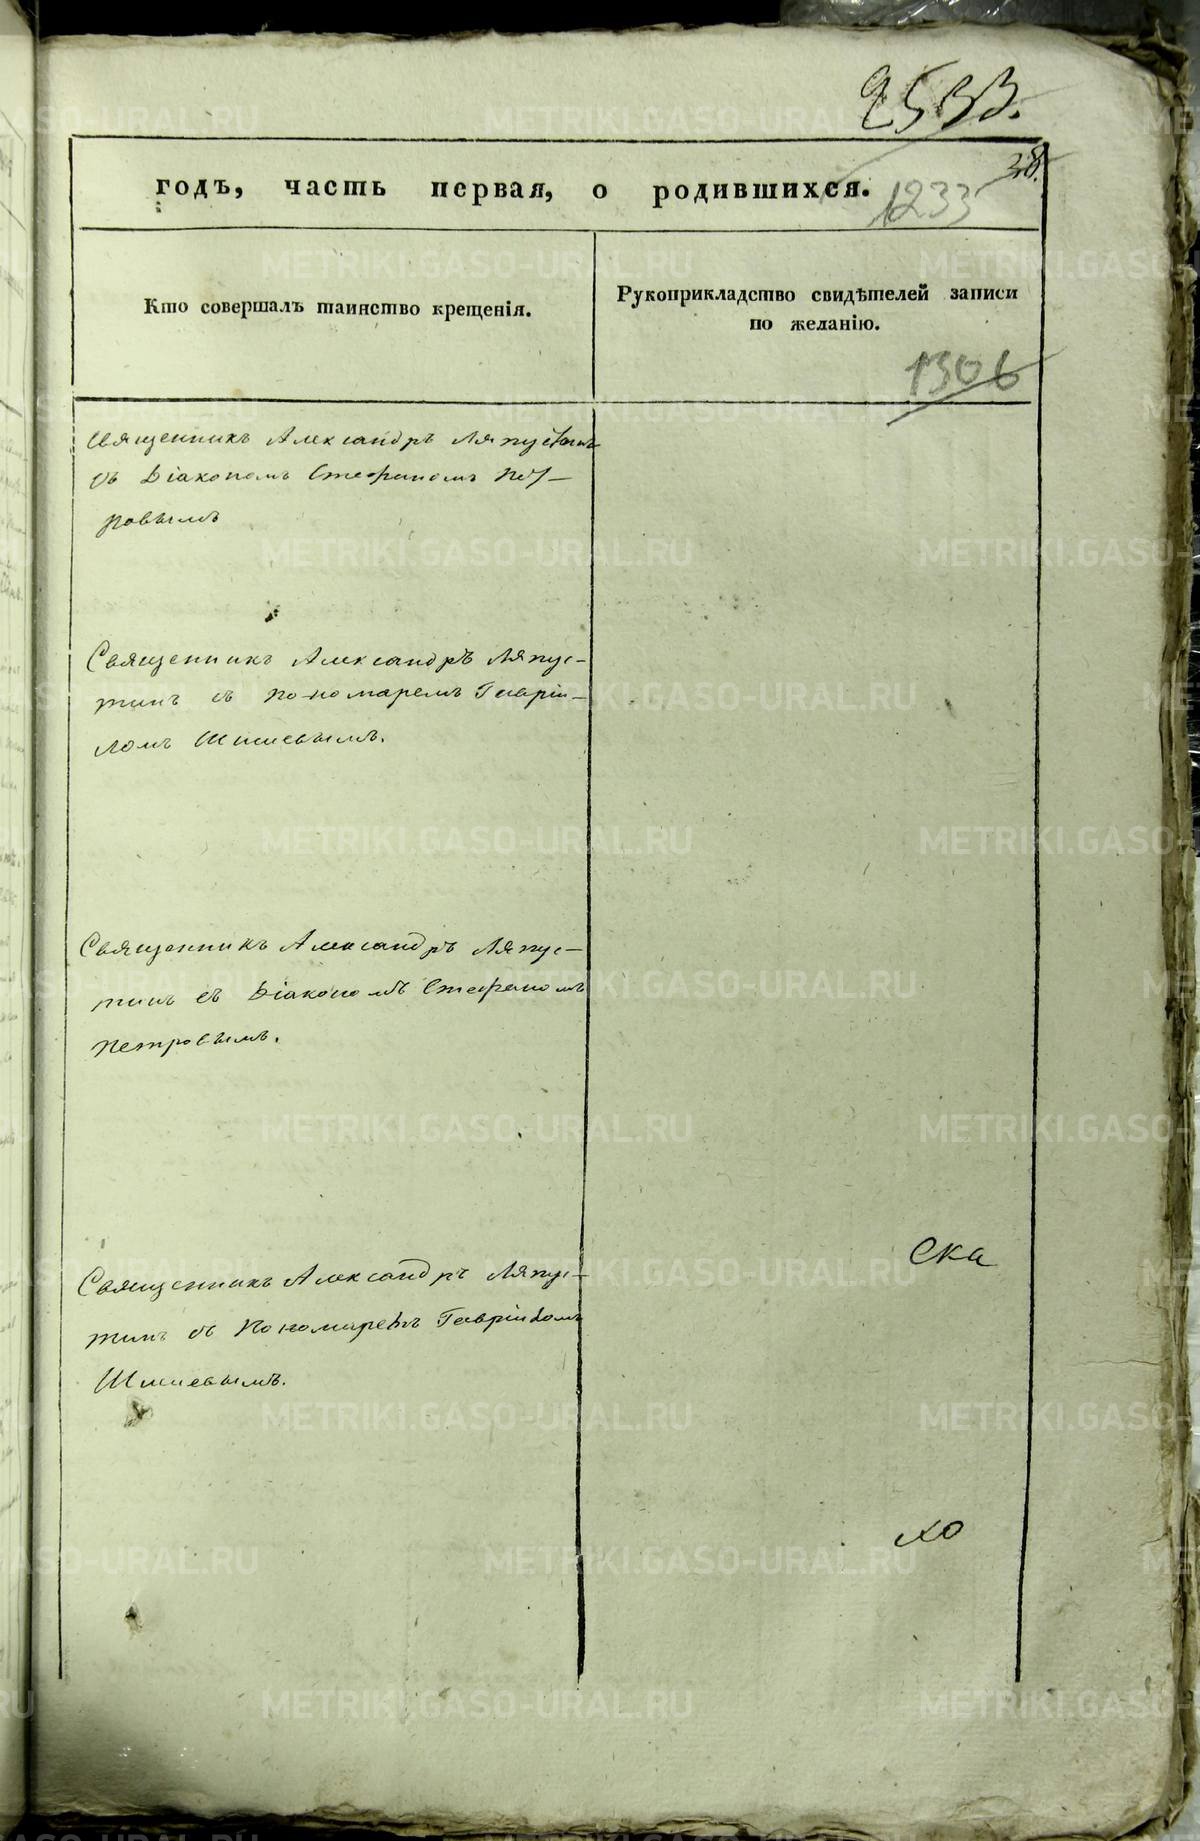 2533.
38.
годъ, часть первая, о родившихся.
1233
Кто совершалъ таинство крещенія.
Рукоприкладство свидѣтелей записи
по желанію.
1306
Священникъ Александръ Ляпустинъ
съ Діакономъ Стефаномъ Пет-
ровымъ
Священникъ Александръ Ляпус-
тинъ съ Пономаремъ Гаврiи-
ломъ Шишевымъ.
Священникъ Александръ Ляпус-
тинъ съ Діакономъ Стефаномъ
Петровымъ.
Ска
Священникъ Александръ Ляпус-
тинъ съ Пономаремъ Гавріиломъ
Шишевымъ.
хо
METRIKI.GASO-URAL.RU